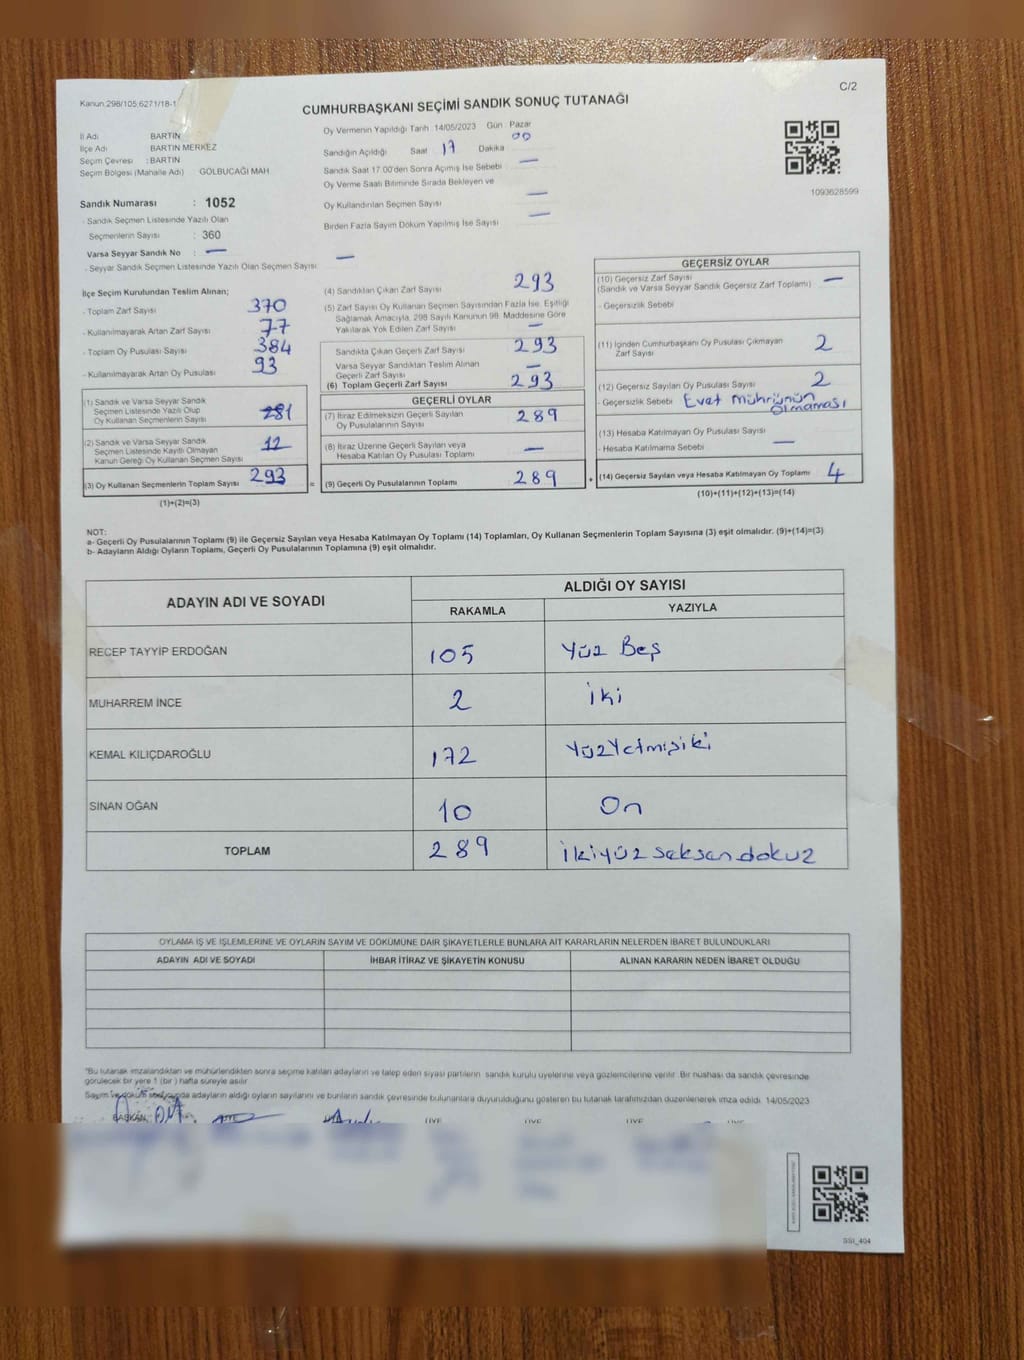 C/2
Kanun 298/105,6271/18-1
CUMHURBAŞKANI SEÇİMİ SANDIK SONUÇ TUTANAĞI
İl Adı BARTIN
İlçe Adı BARTIN MERKEZ
Seçim Çevresi : BARTIN
Seçim Bölgesi (Mahalle Adı) GÖLBUCAĞI MAH
Sandık Numarası : 1052
- Sandık Seçmen Listesinde Yazılı Olan
Seçmenlerin Sayısı : 360
Varsa Seyyar Sandık No : —
- Seyyar Sandık Seçmen Listesinde Yazılı Olan Seçmen Sayısı —
Oy Vermenin Yapıldığı Tarih 14/05/2023 Gün Pazar
Sandığın Açıldığı Saat 17 Dakika 00
Sandık Saat 17:00'den Sonra Açımış İse Sebebi —
Oy Verme Saati Bitiminde Sırada Bekleyen ve
Oy Kullandırılan Seçmen Sayısı —
Birden Fazla Sayım Döküm Yapılmış İse Sayısı —
1093628599
İlçe Seçim Kurulundan Teslim Alınan;
- Toplam Zarf Sayısı 370
- Kullanılmayarak Artan Zarf Sayısı 77
- Toplam Oy Pusulası Sayısı 384
- Kullanılmayarak Artan Oy Pusulası 93
(1) Sandık ve Varsa Seyyar Sandık
Seçmen Listesinde Yazılı Olup
Oy Kullanan Seçmenlerin Sayısı 281
(2) Sandık ve Varsa Seyyar Sandık
Seçmen Listesinde Kayıtlı Olmayan
Kanun Gereği Oy Kullanan Seçmen Sayısı 12
(3) Oy Kullanan Seçmenlerin Toplam Sayısı 293
(1)+(2)=(3)
(4) Sandıktan Çıkan Zarf Sayısı 293
(5) Zarf Sayısı Oy Kullanan Seçmen Sayısından Fazla İse, Eşitliği
Sağlamak Amacıyla, 298 Sayılı Kanunun 98. Maddesine Göre
Yakılarak Yok Edilen Zarf Sayısı —
Sandıkta Çıkan Geçerli Zarf Sayısı 293
Varsa Seyyar Sandıktan Teslim Alınan
Geçerli Zarf Sayısı —
(6) Toplam Geçerli Zarf Sayısı 293
GEÇERLİ OYLAR
(7) İtiraz Edilmeksizin Geçerli Sayılan
Oy Pusulalarının Sayısı 289
(8) İtiraz Üzerine Geçerli Sayılan veya
Hesaba Katılan Oy Pusulası Toplamı —
= (9) Geçerli Oy Pusulalarının Toplamı 289
GEÇERSİZ OYLAR
(10) Geçersiz Zarf Sayısı
(Sandık ve Varsa Seyyar Sandık Geçersiz Zarf Toplamı) —
- Geçersizlik Sebebi
(11) İçinden Cumhurbaşkanı Oy Pusulası Çıkmayan
Zarf Sayısı 2
(12) Geçersiz Sayılan Oy Pusulası Sayısı 2
- Geçersizlik Sebebi Evet mührünün
olmaması
(13) Hesaba Katılmayan Oy Pusulası Sayısı
- Hesaba Katılmama Sebebi —
+ (14) Geçersiz Sayılan veya Hesaba Katılmayan Oy Toplamı 4
(10)+(11)+(12)+(13)=(14)
NOT:
a- Geçerli Oy Pusulalarının Toplamı (9) ile Geçersiz Sayılan veya Hesaba Katılmayan Oy Toplamı (14) Toplamları, Oy Kullanan Seçmenlerin Toplam Sayısına (3) eşit olmalıdır. (9)+(14)=(3)
b- Adayların Aldığı Oyların Toplamı, Geçerli Oy Pusulalarının Toplamına (9) eşit olmalıdır.
ADAYIN ADI VE SOYADI ALDIĞI OY SAYISI
RAKAMLA YAZIYLA
RECEP TAYYİP ERDOĞAN 105 Yüz Beş
MUHARREM İNCE 2 İki
KEMAL KILIÇDAROĞLU 172 Yüzyetmişiki
SİNAN OĞAN 10 On
TOPLAM 289 İkiyüz seksen dokuz
OYLAMA İŞ VE İŞLEMLERİNE VE OYLARIN SAYIM VE DÖKÜMÜNE DAİR ŞİKAYETLERLE BUNLARA AİT KARARLARIN NELERDEN İBARET BULUNDUKLARI
ADAYIN ADI VE SOYADI İHBAR İTİRAZ VE ŞİKAYETİN KONUSU ALINAN KARARIN NEDEN İBARET OLDUĞU
"Bu tutanak imzalandıktan ve mühürlendikten sonra seçime katılan adayların ve talep eden siyasi partilerin sandık kurulu üyelerine veya gözlemcilerine verilir. Bir nüshası da sandık çevresinde
görülecek bir yere 1 (bir) hafta süreyle asılır.
Sayım ve döküm sonucunda adayların aldığı oyların sayılarını ve bunların sandık çevresinde bulunanlara duyurulduğunu gösteren bu tutanak tarafımızdan düzenlenerek imza edildi. 14/05/2023
BAŞKAN ÜYE ÜYE ÜYE ÜYE ÜYE
SSI_404